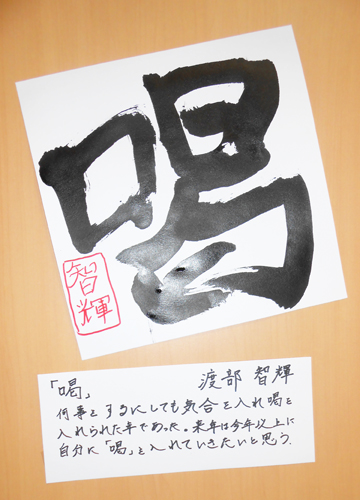 喝
智
輝
「喝」 渡部 智輝
何事をするにしても気合を入れ喝を
入れられた年であった。来年は今年以上に
自分に「喝」を入れていきたいと思う。